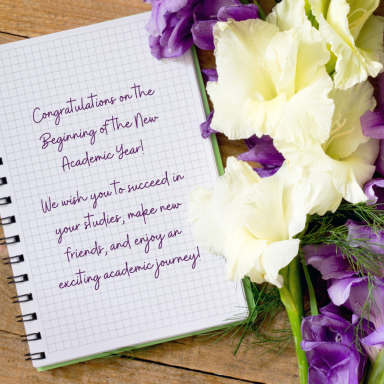 Congratulations on the
Beginning of the New
Academic Year!
We wish you to succeed in
your studies, make new
friends, and enjoy an
exciting academic journey!